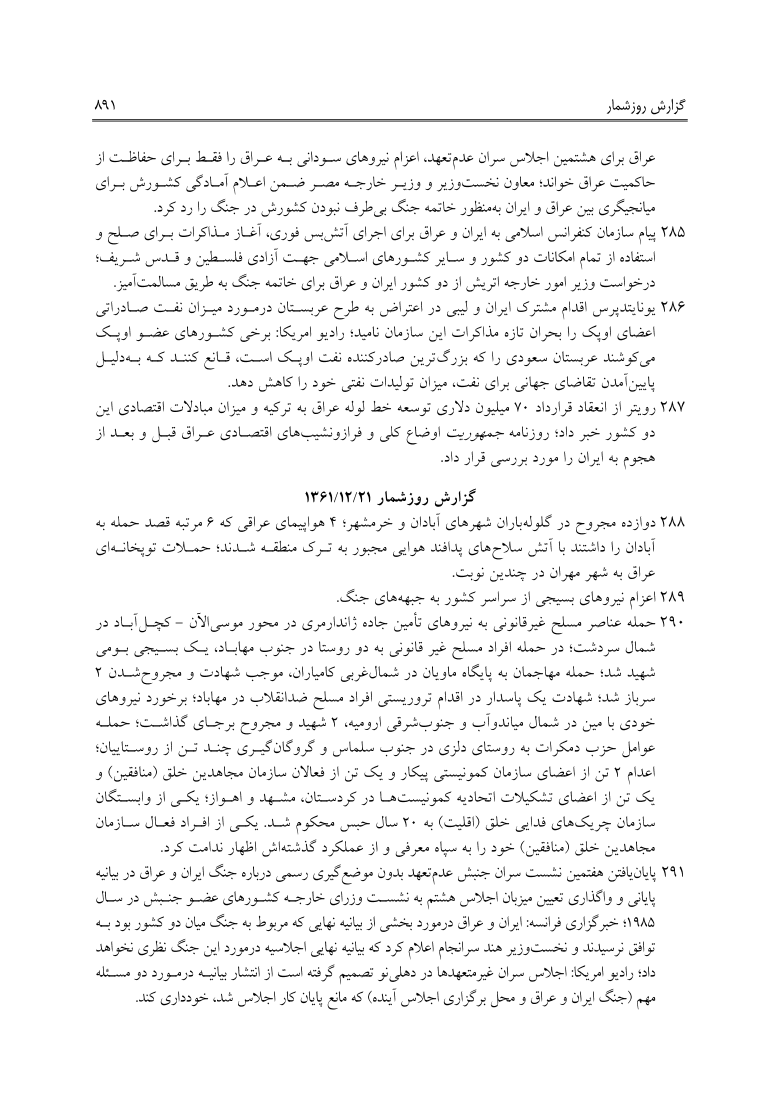 گزارش روزشمار ۸۹۱
عراق برای هشتمین اجلاس سران عدم‌تعهد، اعزام نیروهای سودانی به عراق را فقط برای حفاظت از
حاکمیت عراق خواند؛ معاون نخست‌وزیر و وزیر خارجه مصر ضمن اعلام آمادگی کشورش برای
میانجیگری بین عراق و ایران به‌منظور خاتمه جنگ بی‌طرف نبودن کشورش در جنگ را رد کرد.
۲۸۵ پیام سازمان کنفرانس اسلامی به ایران و عراق برای اجرای آتش‌بس فوری، آغاز مذاکرات برای صلح و
استفاده از تمام امکانات دو کشور و سایر کشورهای اسلامی جهت آزادی فلسطین و قدس شریف؛
درخواست وزیر امور خارجه اتریش از دو کشور ایران و عراق برای خاتمه جنگ به طریق مسالمت‌آمیز.
۲۸۶ یونایتدپرس اقدام مشترک ایران و لیبی در اعتراض به طرح عربستان درمورد میزان نفت صادراتی
اعضای اوپک را بحران تازه مذاکرات این سازمان نامید؛ رادیو امریکا: برخی کشورهای عضو اوپک
می‌کوشند عربستان سعودی را که بزرگ‌ترین صادرکننده نفت اوپک است، قانع کنند که به‌دلیل
پایین‌آمدن تقاضای جهانی برای نفت، میزان تولیدات نفتی خود را کاهش دهد.
۲۸۷ رویتر از انعقاد قرارداد ۷۰ میلیون دلاری توسعه خط لوله عراق به ترکیه و میزان مبادلات اقتصادی این
دو کشور خبر داد؛ روزنامه جمهوریت اوضاع کلی و فرازونشیب‌های اقتصادی عراق قبل و بعد از
هجوم به ایران را مورد بررسی قرار داد.
گزارش روزشمار ۱۳۶۱/۱۲/۲۱
۲۸۸ دوازده مجروح در گلوله‌باران شهرهای آبادان و خرمشهر؛ ۴ هواپیمای عراقی که ۶ مرتبه قصد حمله به
آبادان را داشتند با آتش سلاح‌های پدافند هوایی مجبور به ترک منطقه شدند؛ حملات توپخانه‌ای
عراق به شهر مهران در چندین نوبت.
۲۸۹ اعزام نیروهای بسیجی از سراسر کشور به جبهه‌های جنگ.
۲۹۰ حمله عناصر مسلح غیرقانونی به نیروهای تأمین جاده ژاندارمری در محور موسی‌الآن - کچل‌آباد در
شمال سردشت؛ در حمله افراد مسلح غیر قانونی به دو روستا در جنوب مهاباد، یک بسیجی بومی
شهید شد؛ حمله مهاجمان به پایگاه ماویان در شمال‌غربی کامیاران، موجب شهادت و مجروح‌شدن ۲
سرباز شد؛ شهادت یک پاسدار در اقدام تروریستی افراد مسلح ضدانقلاب در مهاباد؛ برخورد نیروهای
خودی با مین در شمال میاندوآب و جنوب‌شرقی ارومیه، ۲ شهید و مجروح برجای گذاشت؛ حمله
عوامل حزب دمکرات به روستای دلزی در جنوب سلماس و گروگان‌گیری چند تن از روستاییان؛
اعدام ۲ تن از اعضای سازمان کمونیستی پیکار و یک تن از فعالان سازمان مجاهدین خلق (منافقین) و
یک تن از اعضای تشکیلات اتحادیه کمونیست‌ها در کردستان، مشهد و اهواز؛ یکی از وابستگان
سازمان چریک‌های فدایی خلق (اقلیت) به ۲۰ سال حبس محکوم شد. یکی از افراد فعال سازمان
مجاهدین خلق (منافقین) خود را به سپاه معرفی و از عملکرد گذشته‌اش اظهار ندامت کرد.
۲۹۱ پایان‌یافتن هفتمین نشست سران جنبش عدم‌تعهد بدون موضع‌گیری رسمی درباره جنگ ایران و عراق در بیانیه
پایانی و واگذاری تعیین میزبان اجلاس هشتم به نشست وزرای خارجه کشورهای عضو جنبش در سال
۱۹۸۵؛ خبرگزاری فرانسه: ایران و عراق درمورد بخشی از بیانیه نهایی که مربوط به جنگ میان دو کشور بود به
توافق نرسیدند و نخست‌وزیر هند سرانجام اعلام کرد که بیانیه نهایی اجلاسیه درمورد این جنگ نظری نخواهد
داد؛ رادیو امریکا: اجلاس سران غیرمتعهدها در دهلی‌نو تصمیم گرفته است از انتشار بیانیه درمورد دو مسئله
مهم (جنگ ایران و عراق و محل برگزاری اجلاس آینده) که مانع پایان کار اجلاس شد، خودداری کند.